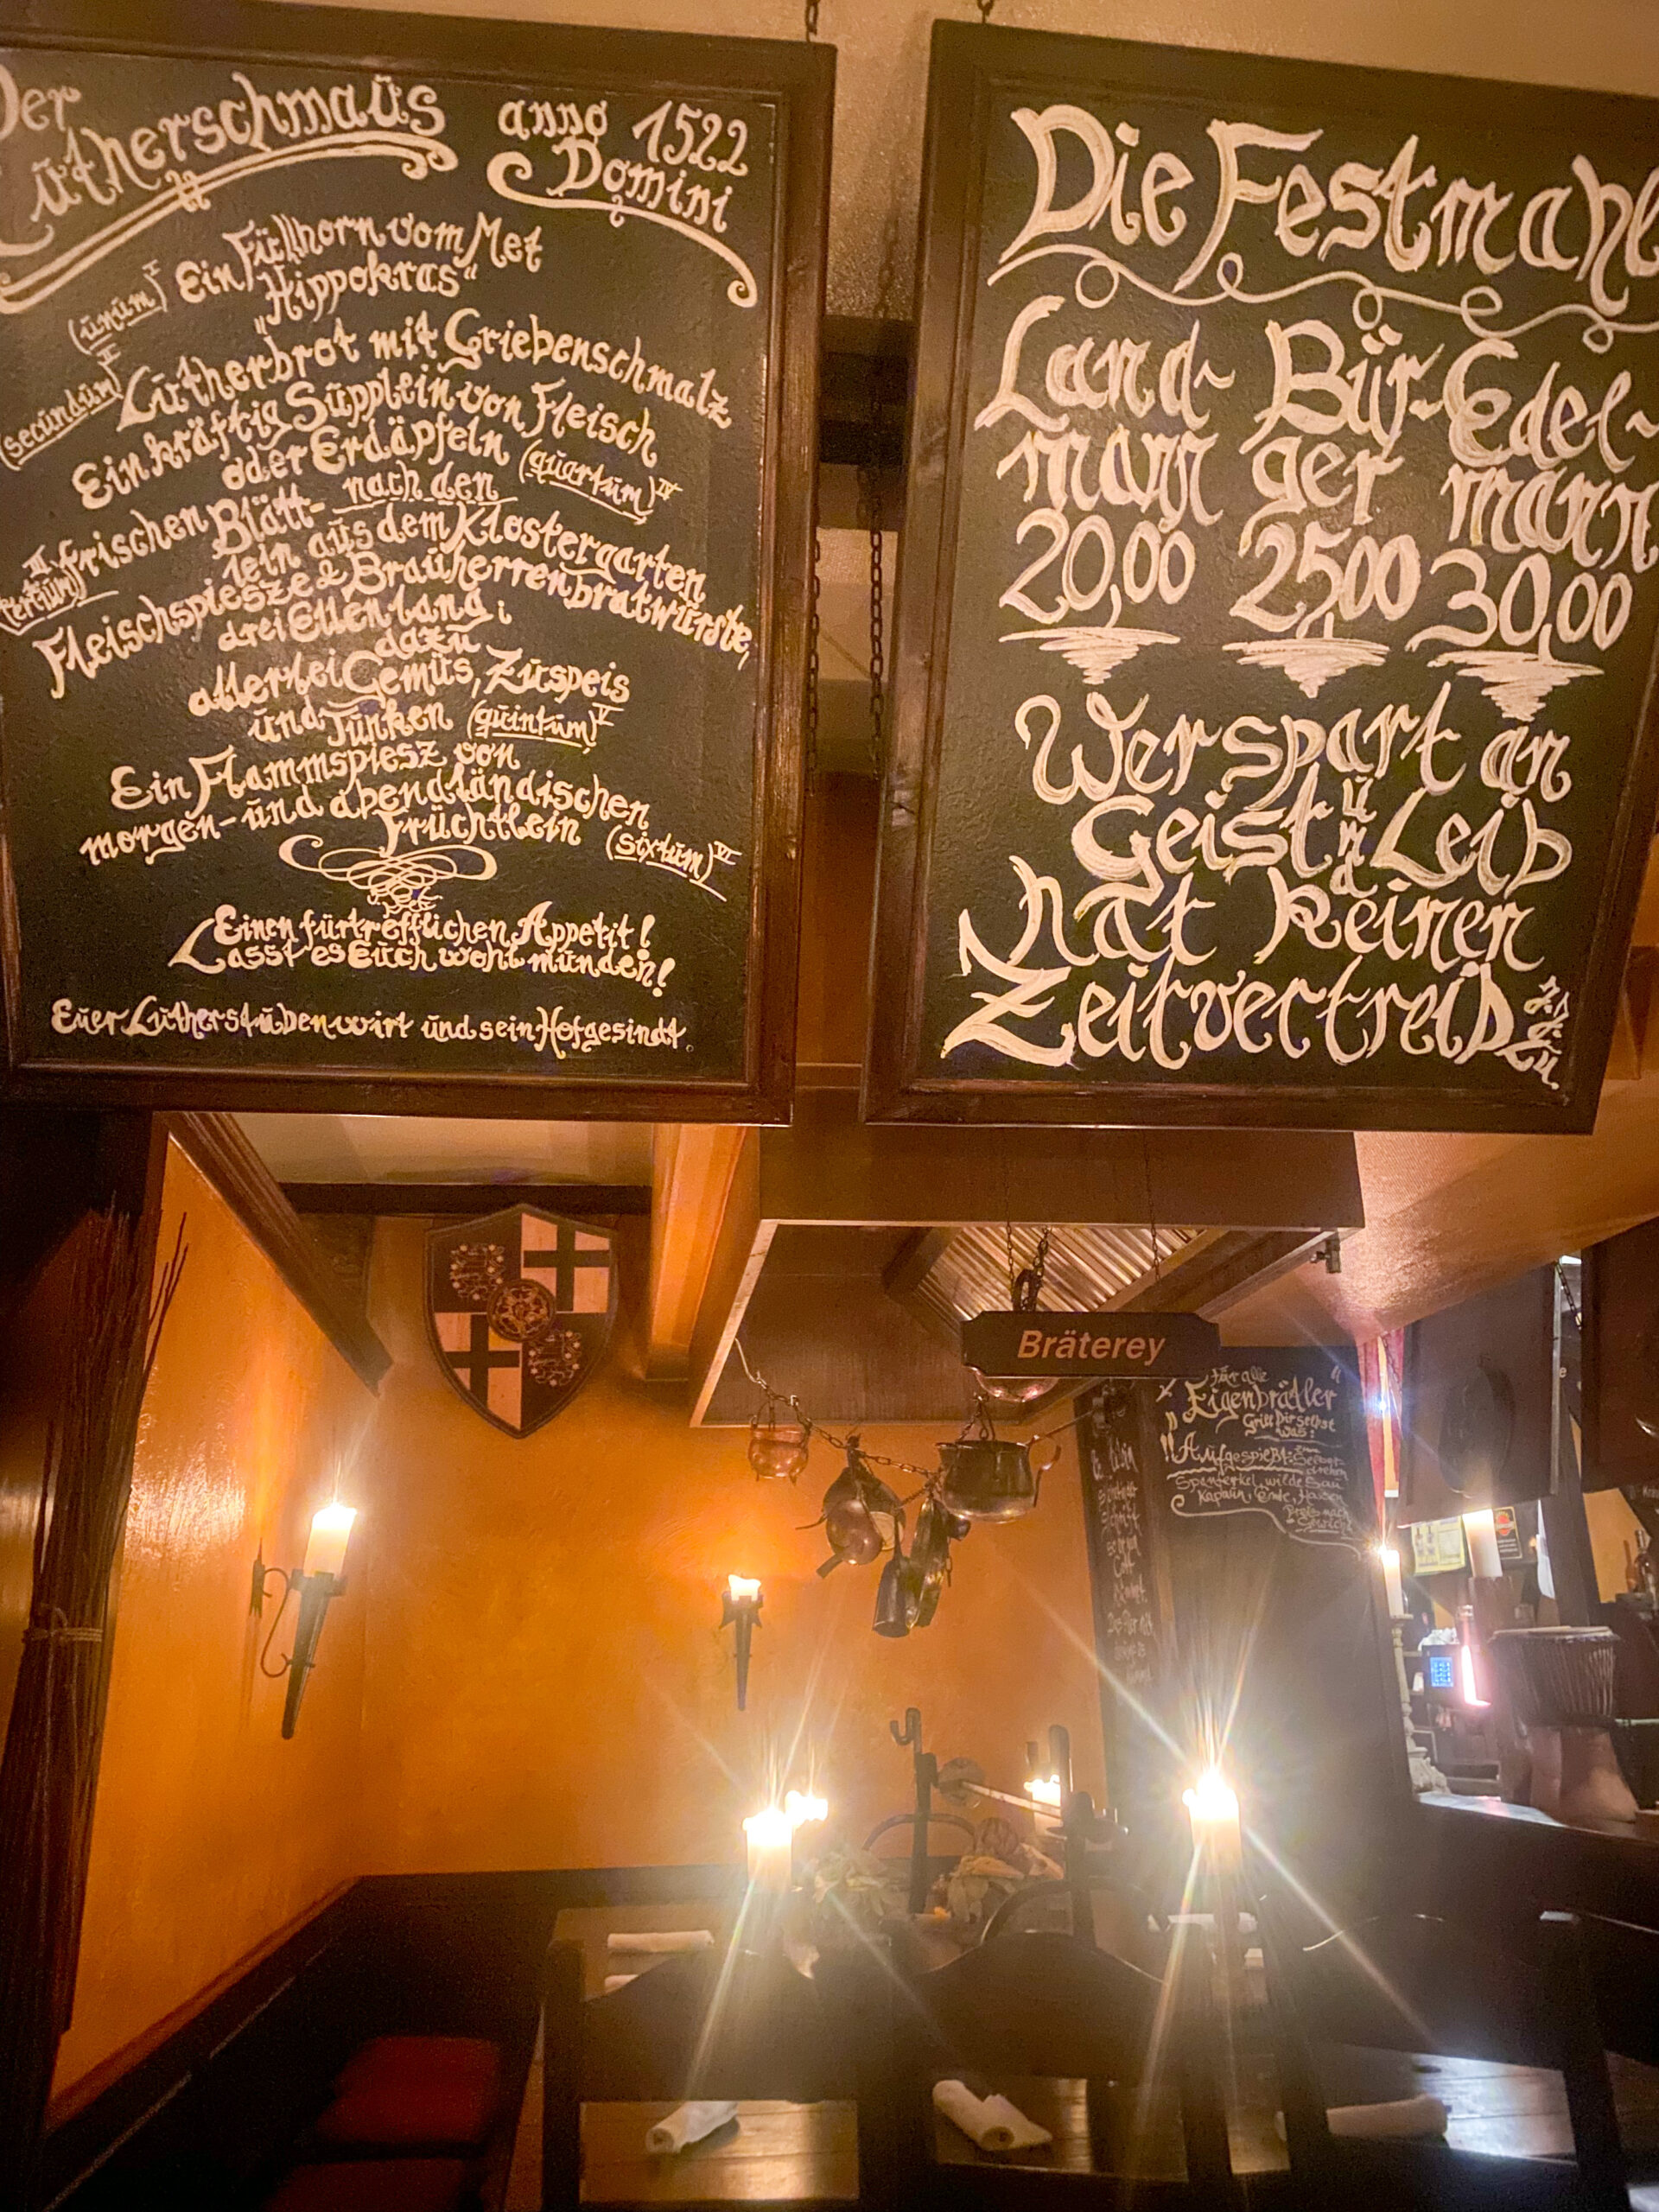 Der
Lütherschmaüs
anno 1522
Domini
(ünüm) I Ein Füllhorn vom Met
"Hippokras"
(secündün) II Lütherbrot mit Griebenschmalz
Ein kräftig Süpplein von Fleisch
oder Erdäpfeln (quartüm) IV
nach den
III (tertiüm) frischen Blätt-
lein aüs dem Klostergarten
Fleischspiesze & Braüherrenbratwürste,
drei Ellen lang;
dazü
allerlei Gemüs, Züspeis
ünd Tünken (qüintüm) V
Ein Flammspiesz von
morgen- ünd abendländischen
Früchtlein (sixtüm) VI
Einen fürtrefflichen Appetit!
Lasst es Eüch wohl münden!
Eüer Lütherstüben wirt ünd sein Hofgesindt.
Die Festmahl
Land- Bür- Edel-
mann ger mann
20,00 25,00 30,00
Wer spart an
Geist und Leib
hat keinen
Zeitvertreib
Bräterey
Für alle
"Eigenbrätler"
Grill Dir selbst
was:
Aufgespießt: Selber
drehen
Spanferkel, wilde Sau
Kapaun, Ente, Hasen
Preis nach
Gewicht